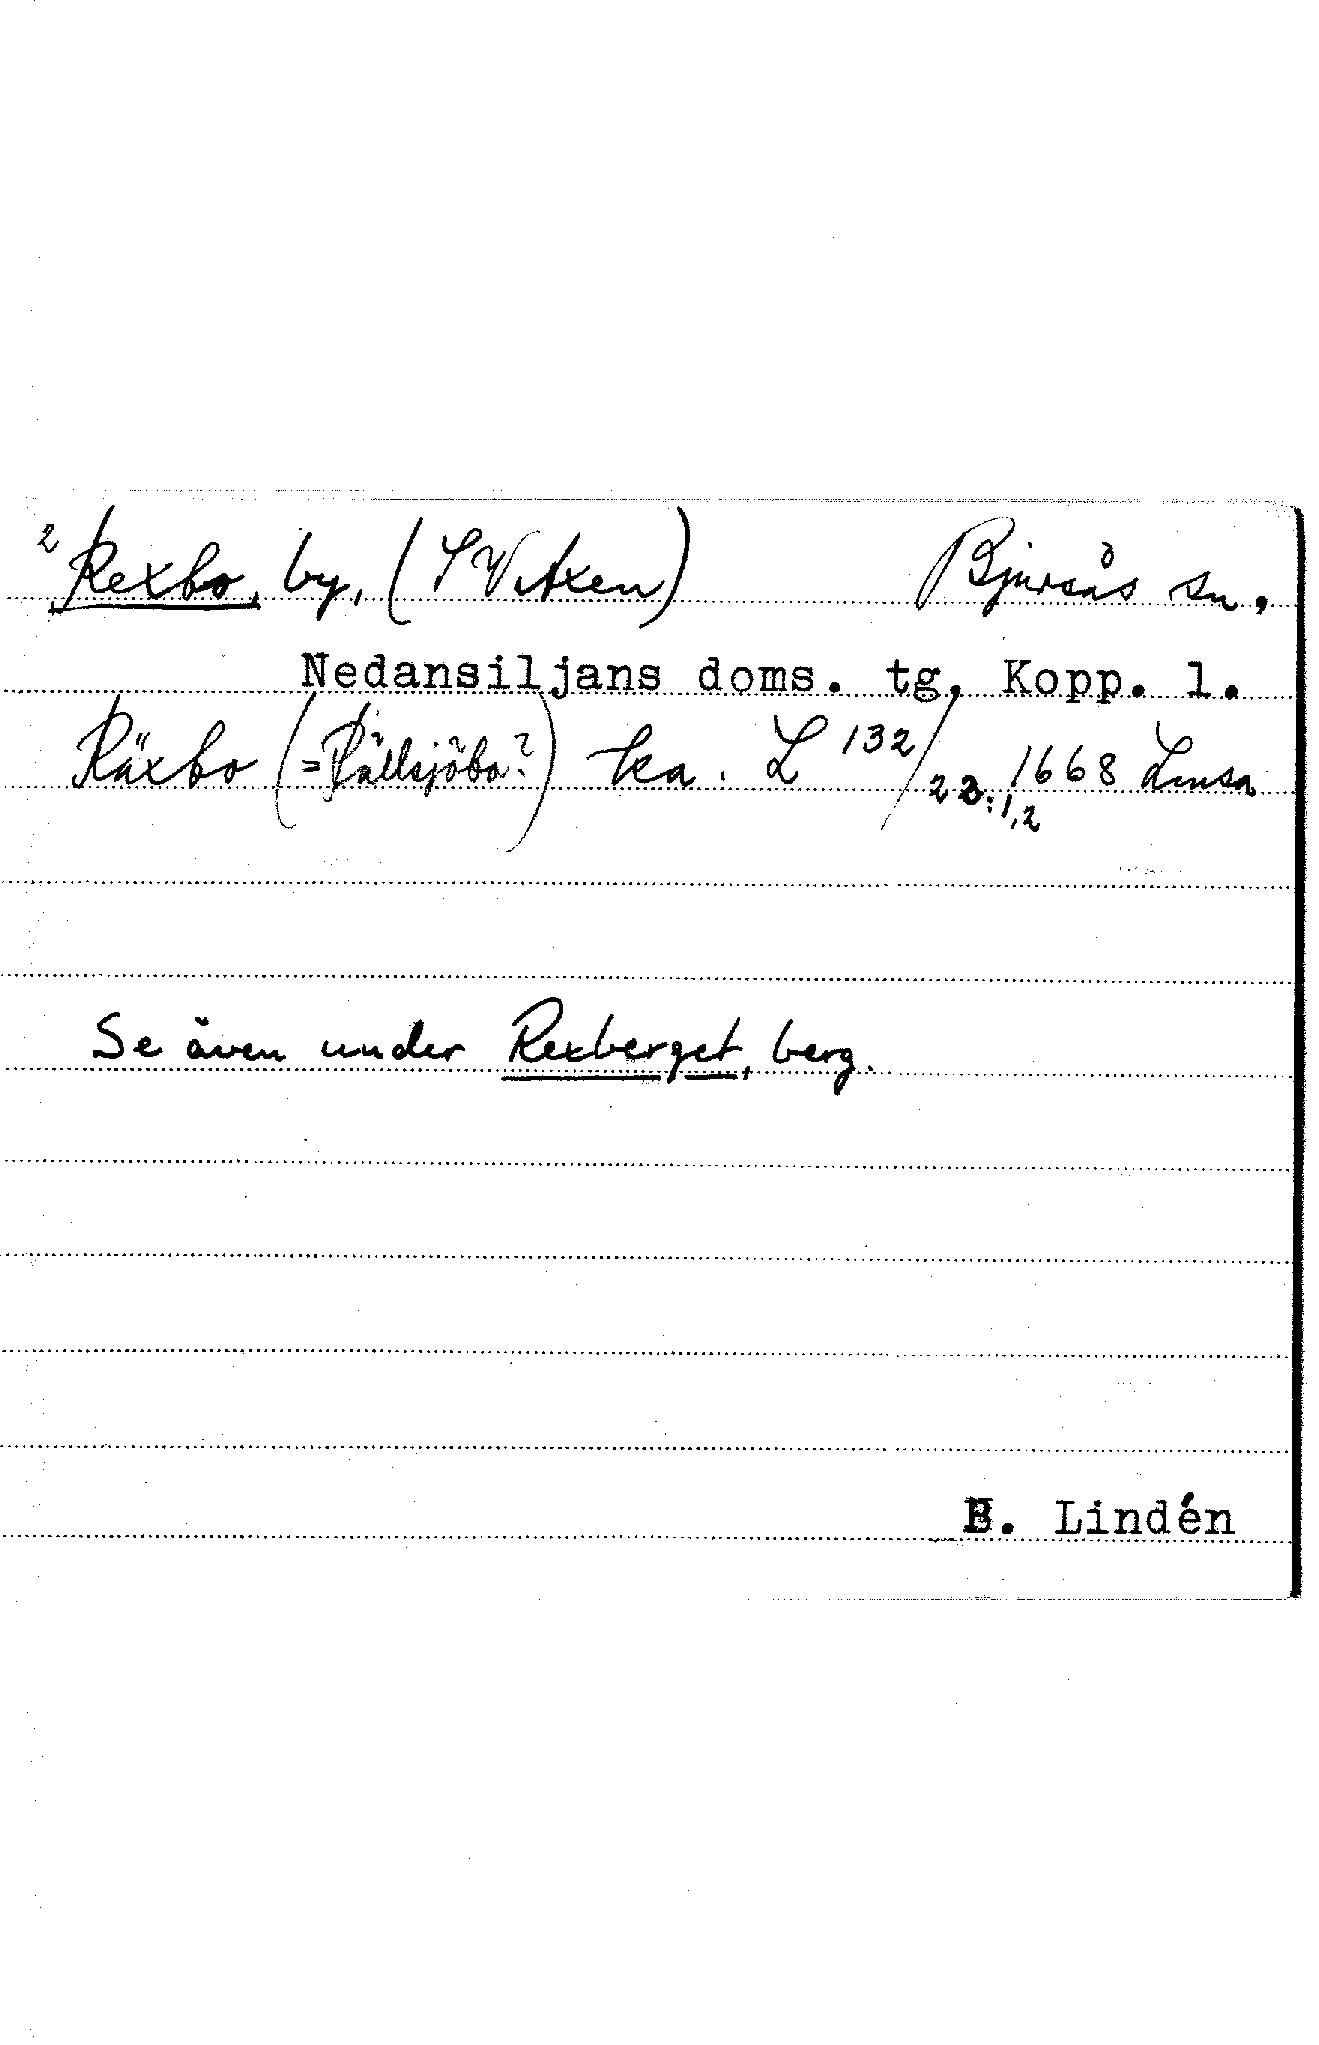 2 Rexbo, by, (S V Axen) Bjursås sn.
Nedansiljans doms. tg. Kopp. l.
Räxbo (=Rällsjöbo?) ka. L 132/22:1,2 1668 Lmsa
Se även under Rexberget, berg.
B. Lindén